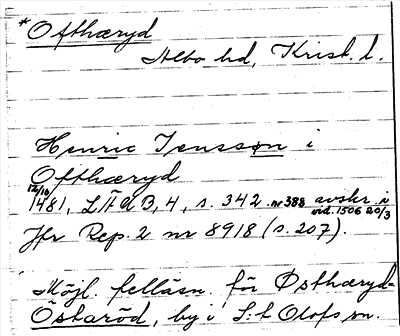 *Ofthæryd
Albo hd, Krist. l.
Henric Jenssøn i
Ofthæryd
12/10
1481, LÄÄB, 4, s. 342 nr 388 avskr. i
vid. 1506 20/3
Jfr Rep. 2 nr 8918 (s. 207).
Möjl. felläsn. för Østhæryd-
Östaröd, by i S:t Olofs sn.